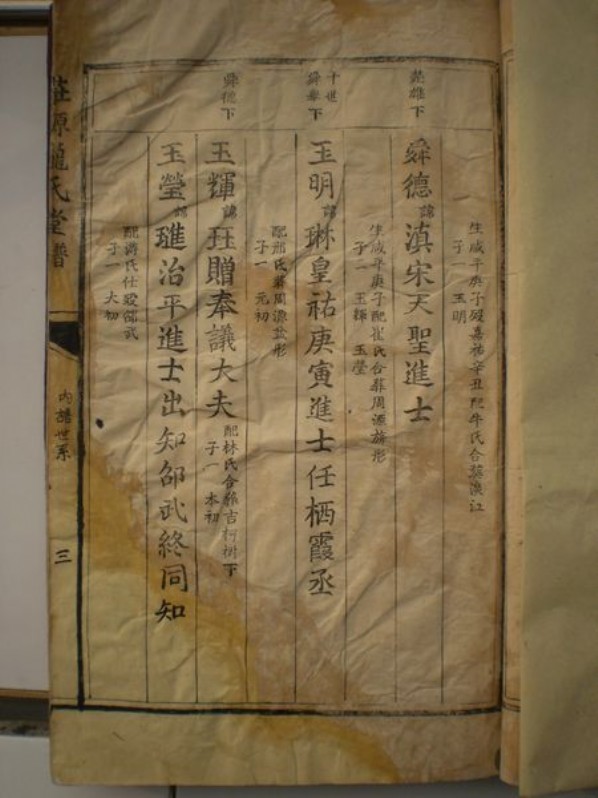 生咸平庚子殁嘉祐辛丑配牛氏合葬漠江
子一 玉明
英雄下
舜德諱滇宋天聖進士
生咸平庚子配崔氏合葬周源旂形
子二 玉輝 玉瑩
十世
舜孝下
玉明諱琳皇祐庚寅進士任栖霞丞
配邢氏葬周源盆形
子一 元初
舜德下
玉輝諱珏贈奉議大夫
配林氏合葬吉柯樹下
子一 本初
玉瑩諱璡治平進士出知邵武終同知
配蔣氏仕殁邵武
子一 大初
莊源龍氏堂譜
內譜世系
三